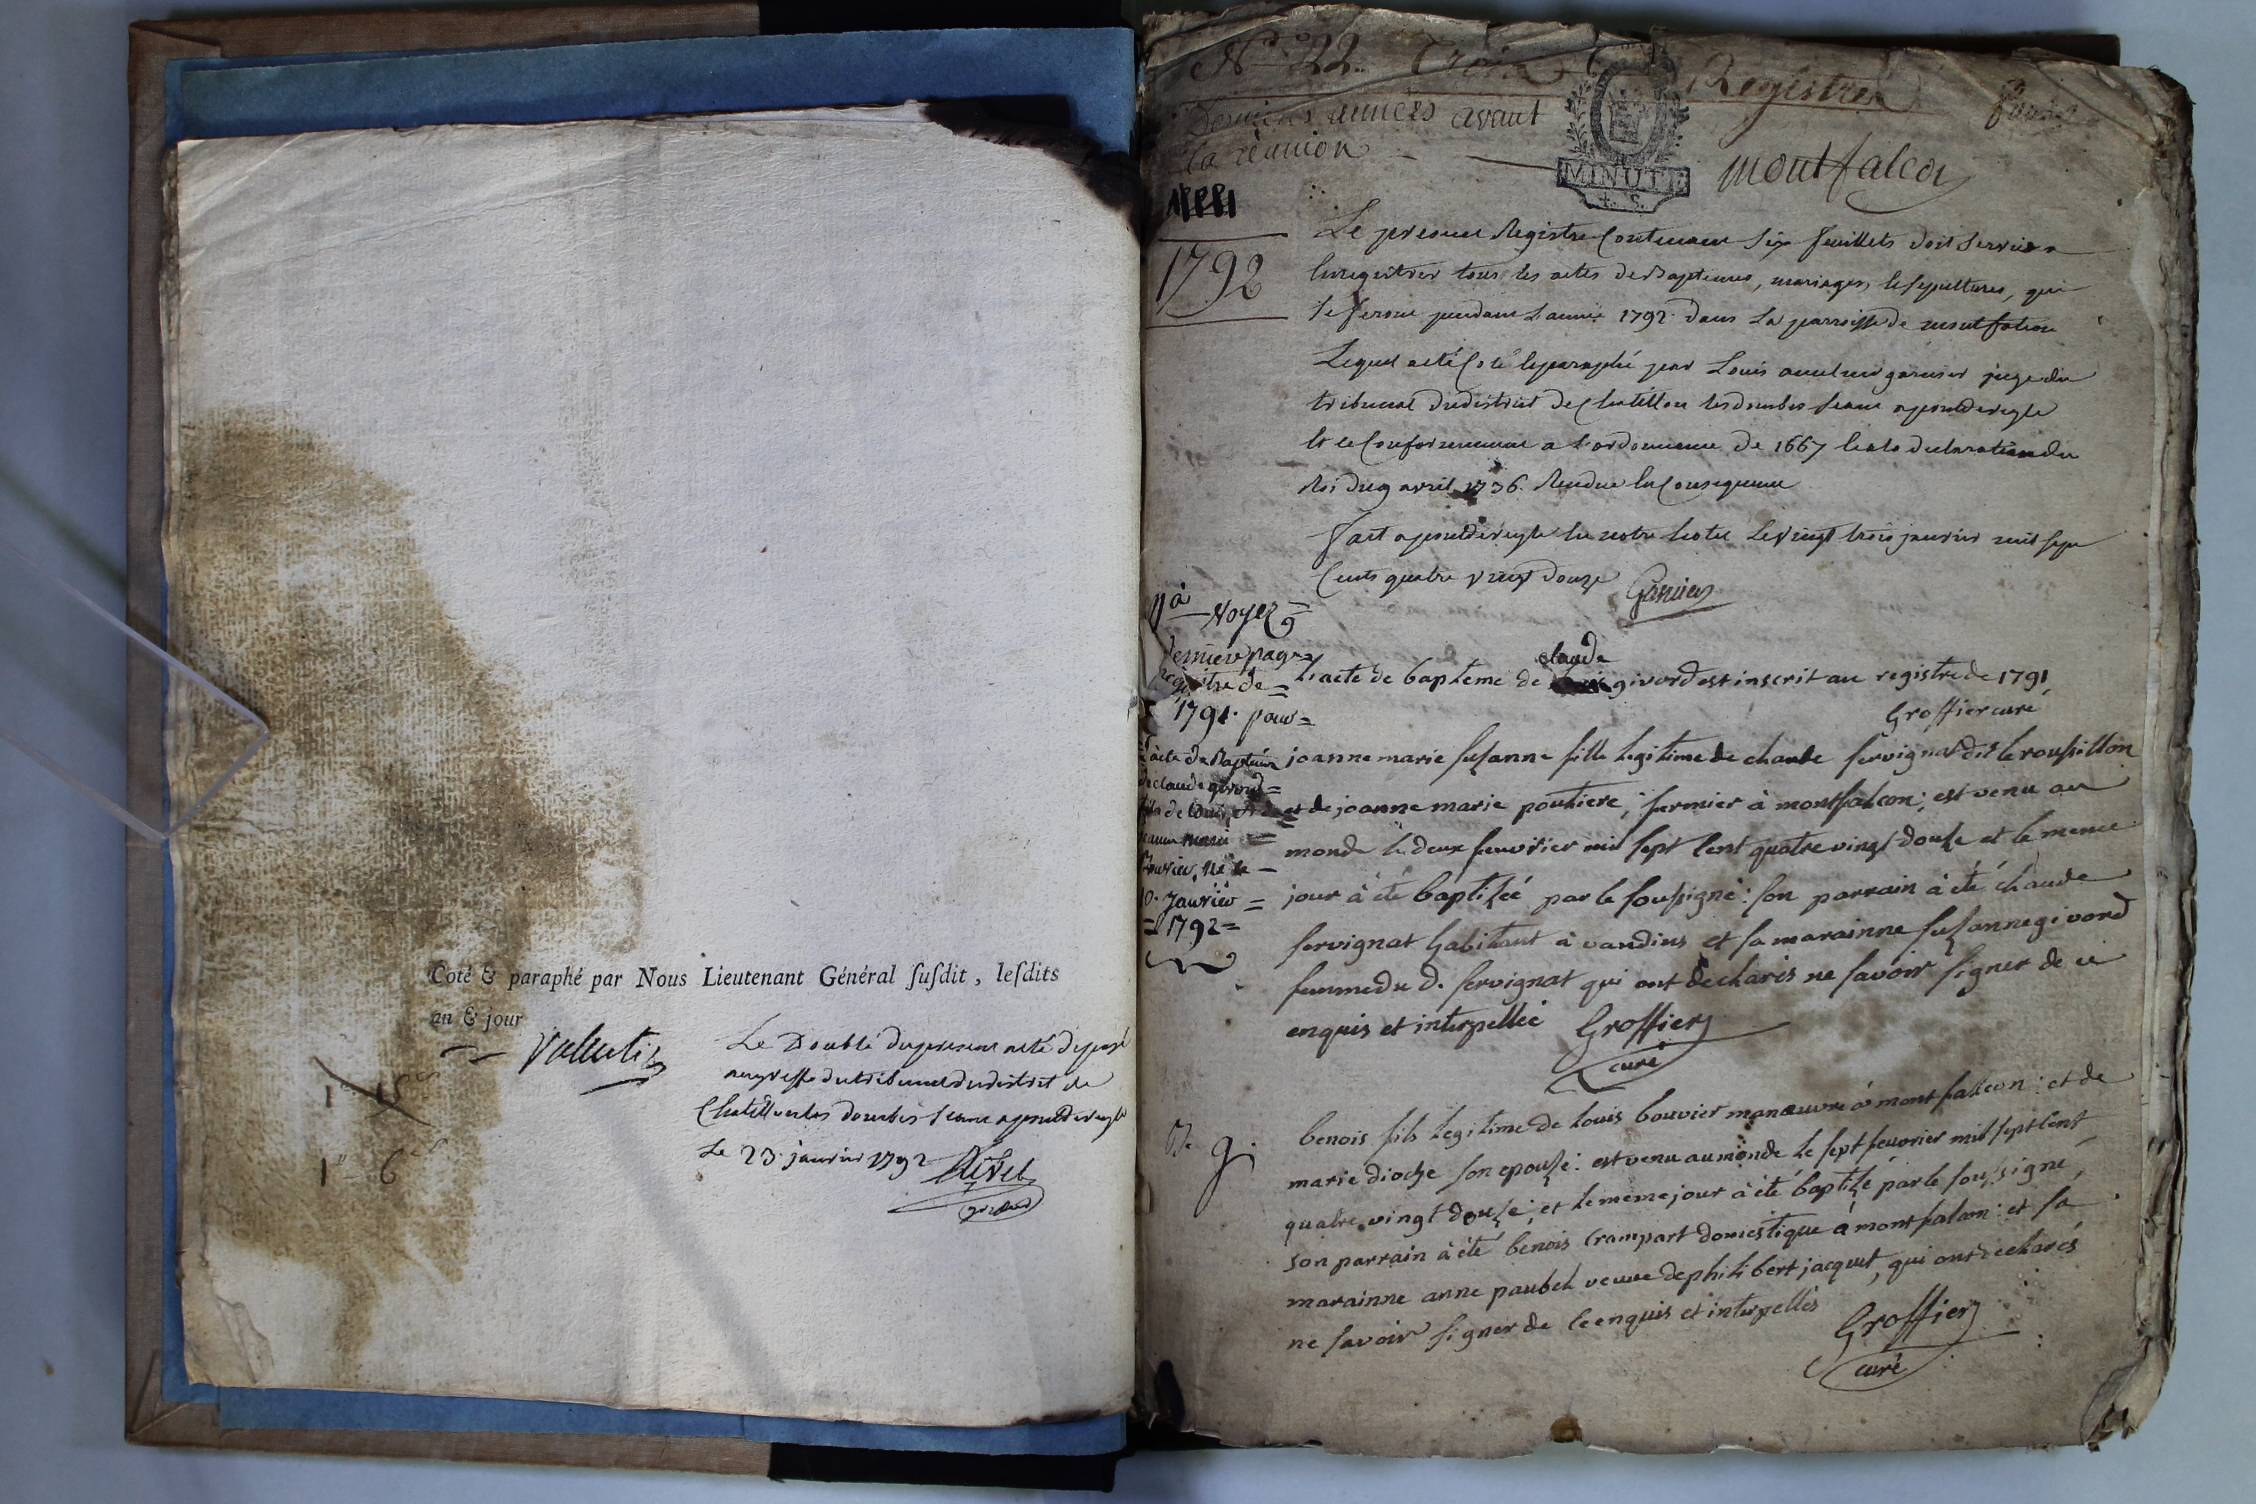 Coté & paraphé par Nous Lieutenant Général ſuſdit, leſdits
an & jour
Valentin
Le Double du present acté deposé
au greffe du tribunal du district de
Chatillon les dombes séant a pontdeveyle
Le 23 janvier 1792
1 6
N° 22. Trois Registres
Dernieres années avant
la réunion
MINUTE
montfalcon
1792
Le present Registre Contenant Six feuillets doit servir a
Enregistrer tous les actes de Baptemes, mariages et sepultures, qui
se feront pendant l'année 1792 dans la parroisse de montfalcon
Lequel a été Coté et paraphé par Louis garnier juge du
tribunal du district de Chatillon les dombes séant a pontdeveyle
Et ce Conformement a l'ordonnance de 1667 et a la declaration du
Roi du 9 avril 1736. Rendue en Consequence
Fait a pontdeveyle en notre hotel Le vingt trois janvier mil sept
Cents quatre vingt douze Garnier
Voyez
derniere page
registre de
1791. pour
l'acte de Baptême
de claude givord
fils de Louis
né le
10. Janvier
1792
L'acte de bapteme de claude givord est inscrit au registre de 1791
Groffier curé
joanne marie susanne fille legitime de claude servignat dit le roussillon
et de joanne marie poutiere; fermier à montfalcon; est venu au
monde le deux feuvrier mil sept Cent quatre vingt douse et le meme
jour à été baptisée par le soussigné: son parrain à été claude
servignat habitant à vandins et sa marainne susanne givord
femme du d. servignat qui ont declarés ne savoir signer de ce
enquis et interpellée Groffier
curé
benois fils legitime de louis bouvier manœuvre à montfalcon: et de
marie dioche son epouse: est venu au monde le sept feuvrier mil sept Cent
quatre vingt douse; et le meme jour à été baptisé par le soussigné,
son parrain à été benois Crampart domestique à montfalcon: et sa
marainne anne paubel veuve de philibert jacquet, qui ont declarés
ne savoir signer de Ce enquis et interpellés
Groffier
curé